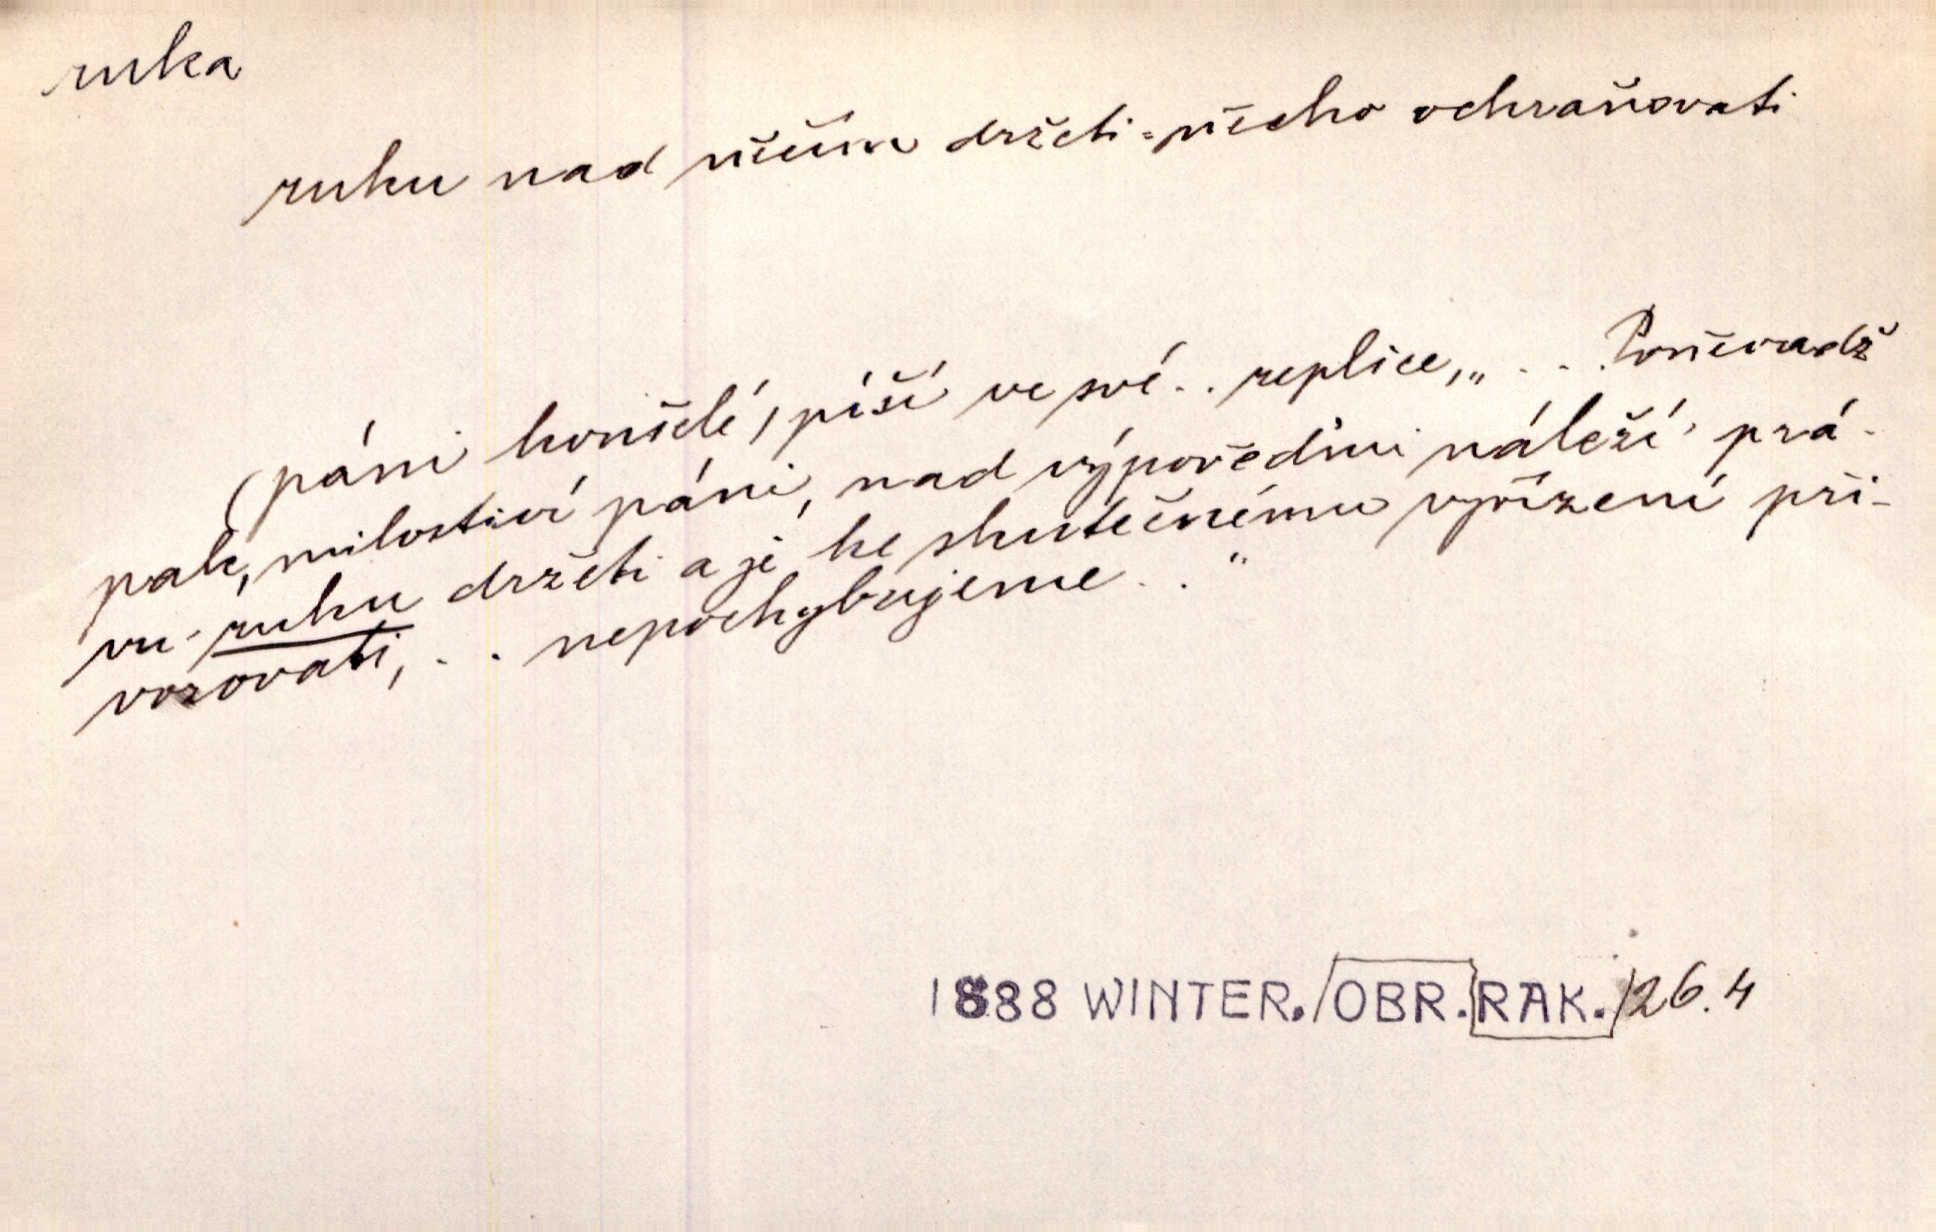 ruka
ruku nad něčím držeti = něčeho ochraňovati
(páni konšelé) píší ve své .. replice, „ . . . Poněvadž
pak, milostiví páni, nad výpověďmi náleží prá-
vu ruku držeti a je ke skutečnému vyřízení při-
vozovati, . . nepochybujeme . . "
1888 WINTER. OBR. RAK. 126. 4